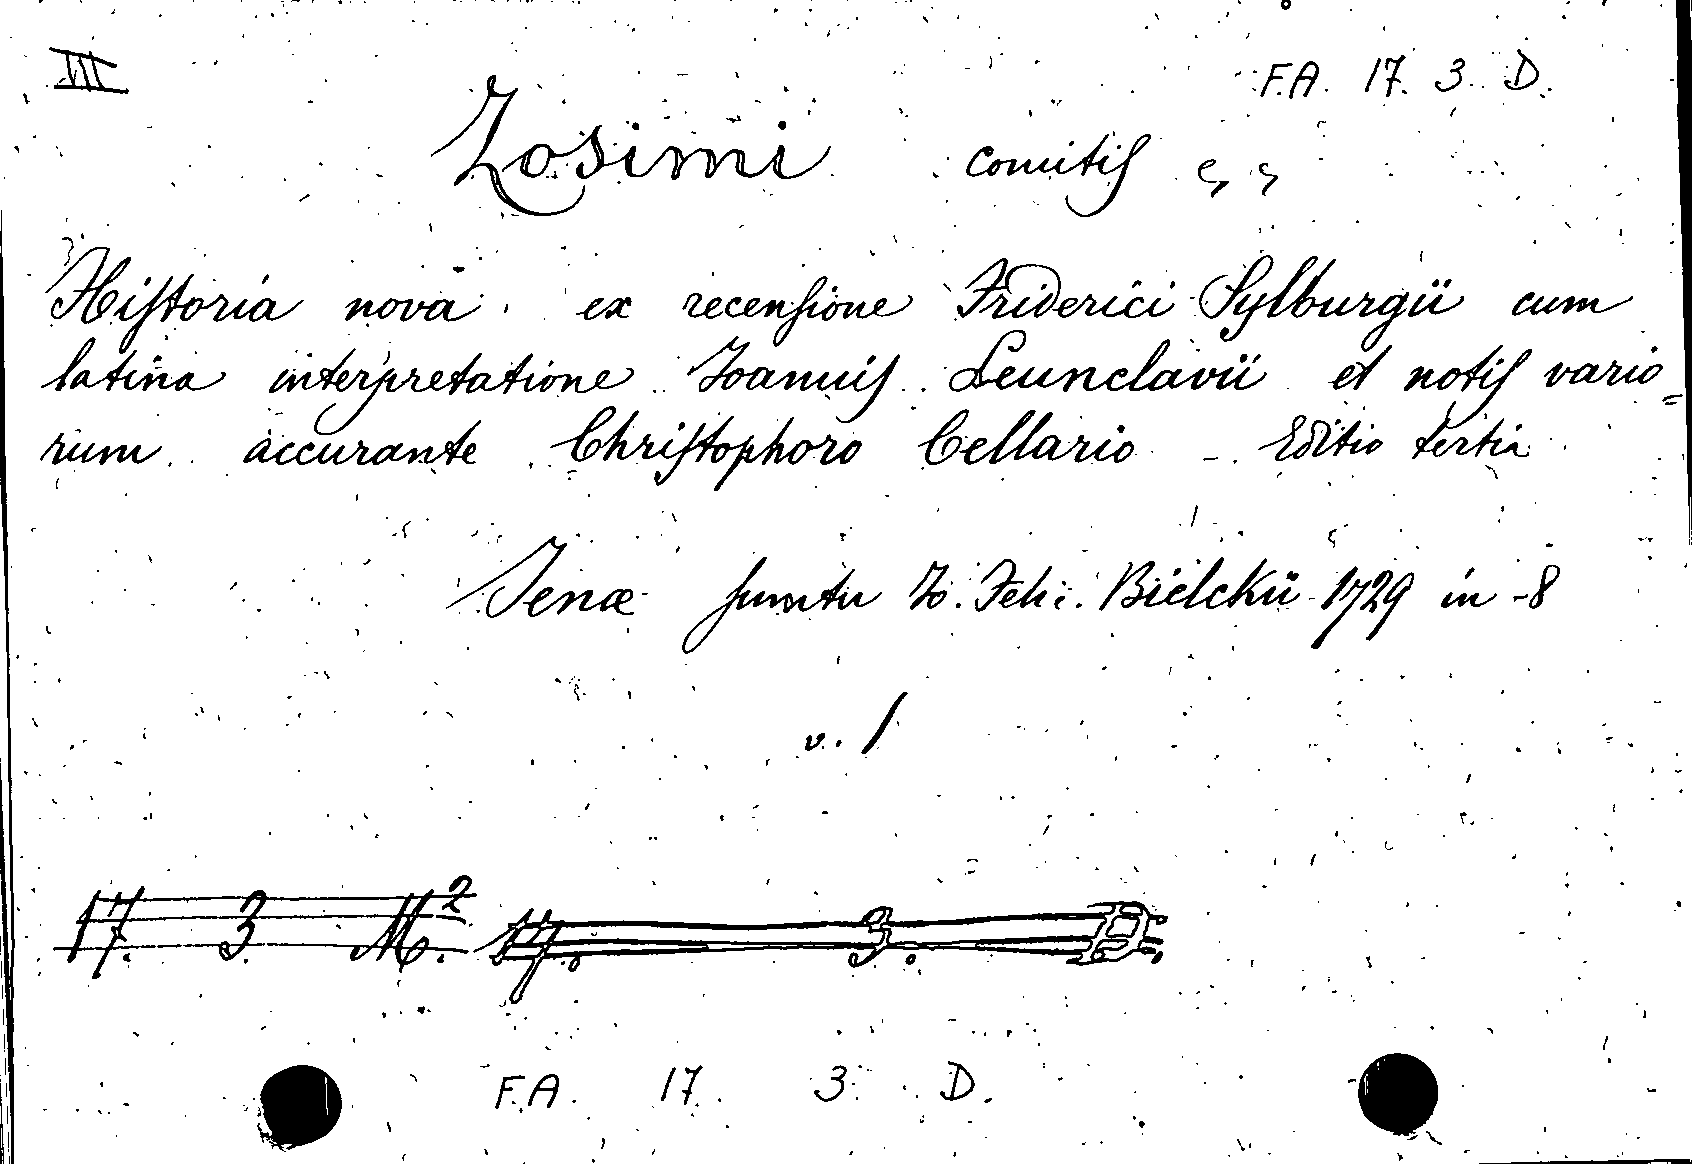 III F.A. 17. 3. D.
Zosimi comitiſ
Hiſtoria nova ex recenſione Friderici Sylburgii cum
latina interpretatione Joanniſ Leunclavii et notiſ vario=
rum accurante Chriſtophoro Cellario - Editio tertia
Jenæ ſumtu Jo. Feli. Bielckii 1729 in -8
v. 1
17. 3 M.² 17. 3. D.
F.A. 17. 3. D.